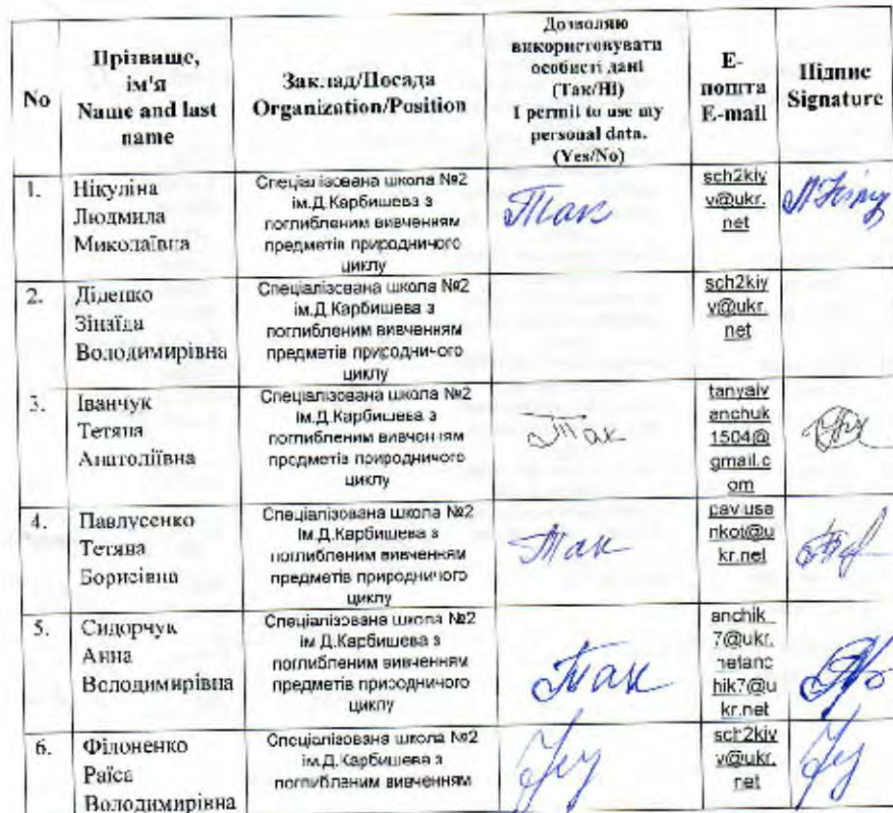 No
Прізвище,
ім'я
Name and last
name
Заклад/Посада
Organization/Position
Дозволяю
використовувати
особисті дані
(Так/Ні)
I permit to use my
personal data.
(Yes/No)
E-
пошта
E-mail
Підпис
Signature
1.
Нікуліна
Людмила
Миколаївна
Спеціалізована школа №2
ім.Д.Карбишева з
поглибленим вивченням
предметів природничого
циклу
Так
sch2kiy
v@ukr.
net
2.
Діденко
Зінаїда
Володимирівна
Спеціалізована школа №2
ім.Д.Карбишева з
поглибленим вивченням
предметів природничого
циклу
sch2kiy
v@ukr.
net
3.
Іванчук
Тетяна
Анатоліївна
Спеціалізована школа №2
ім.Д.Карбишева з
поглибленим вивченням
предметів природничого
циклу
Так
tanyaiv
anchuk
1504@
gmail.c
om
4.
Павлусенко
Тетяна
Борисівна
Спеціалізована школа №2
ім.Д.Карбишева з
поглибленим вивченням
предметів природничого
циклу
Так
pavluse
nkot@u
kr.net
5.
Сидорчук
Анна
Володимирівна
Спеціалізована школа №2
ім.Д.Карбишева з
поглибленим вивченням
предметів природничого
циклу
Так
anchik_
7@ukr.
netanc
hik7@u
kr.net
6.
Філоненко
Раїса
Володимирівна
Спеціалізована школа №2
ім.Д.Карбишева з
поглибленим вивченням
sch2kiy
v@ukr.
net